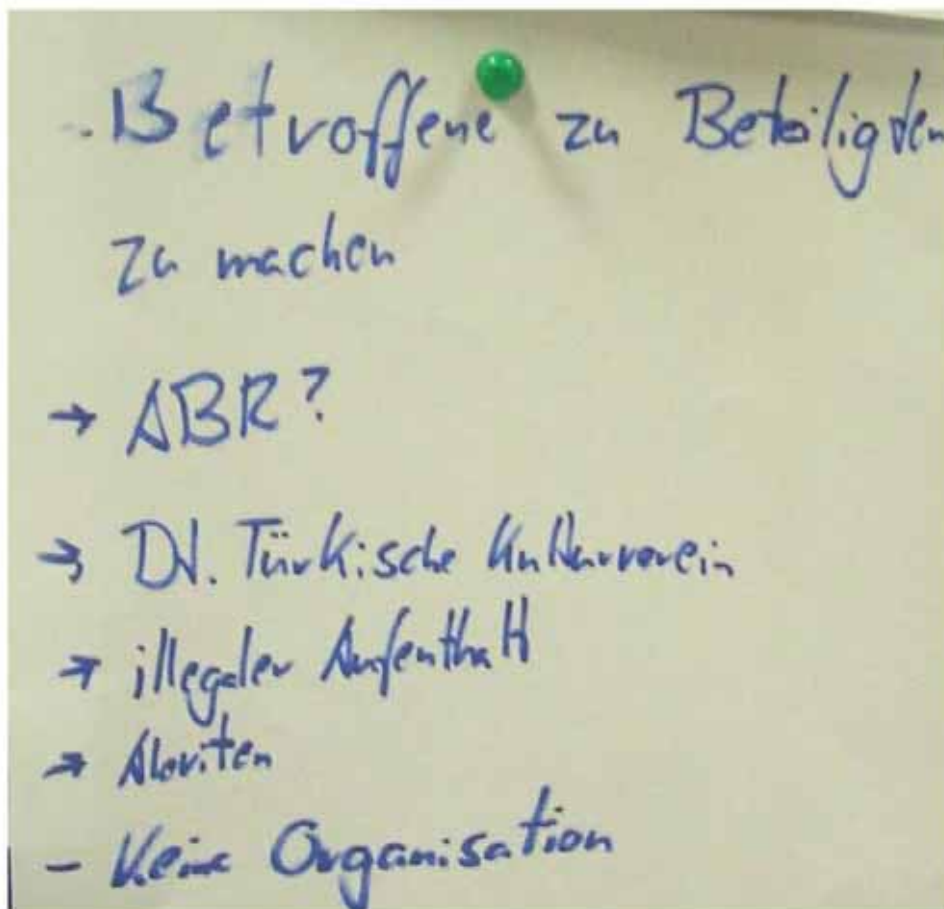 - Betroffene zu Beteiligten
zu machen
→ ABR?
→ Dt. Türkische Kulturverein
→ illegaler Aufenthalt
→ Aleviten
- Keine Organisation